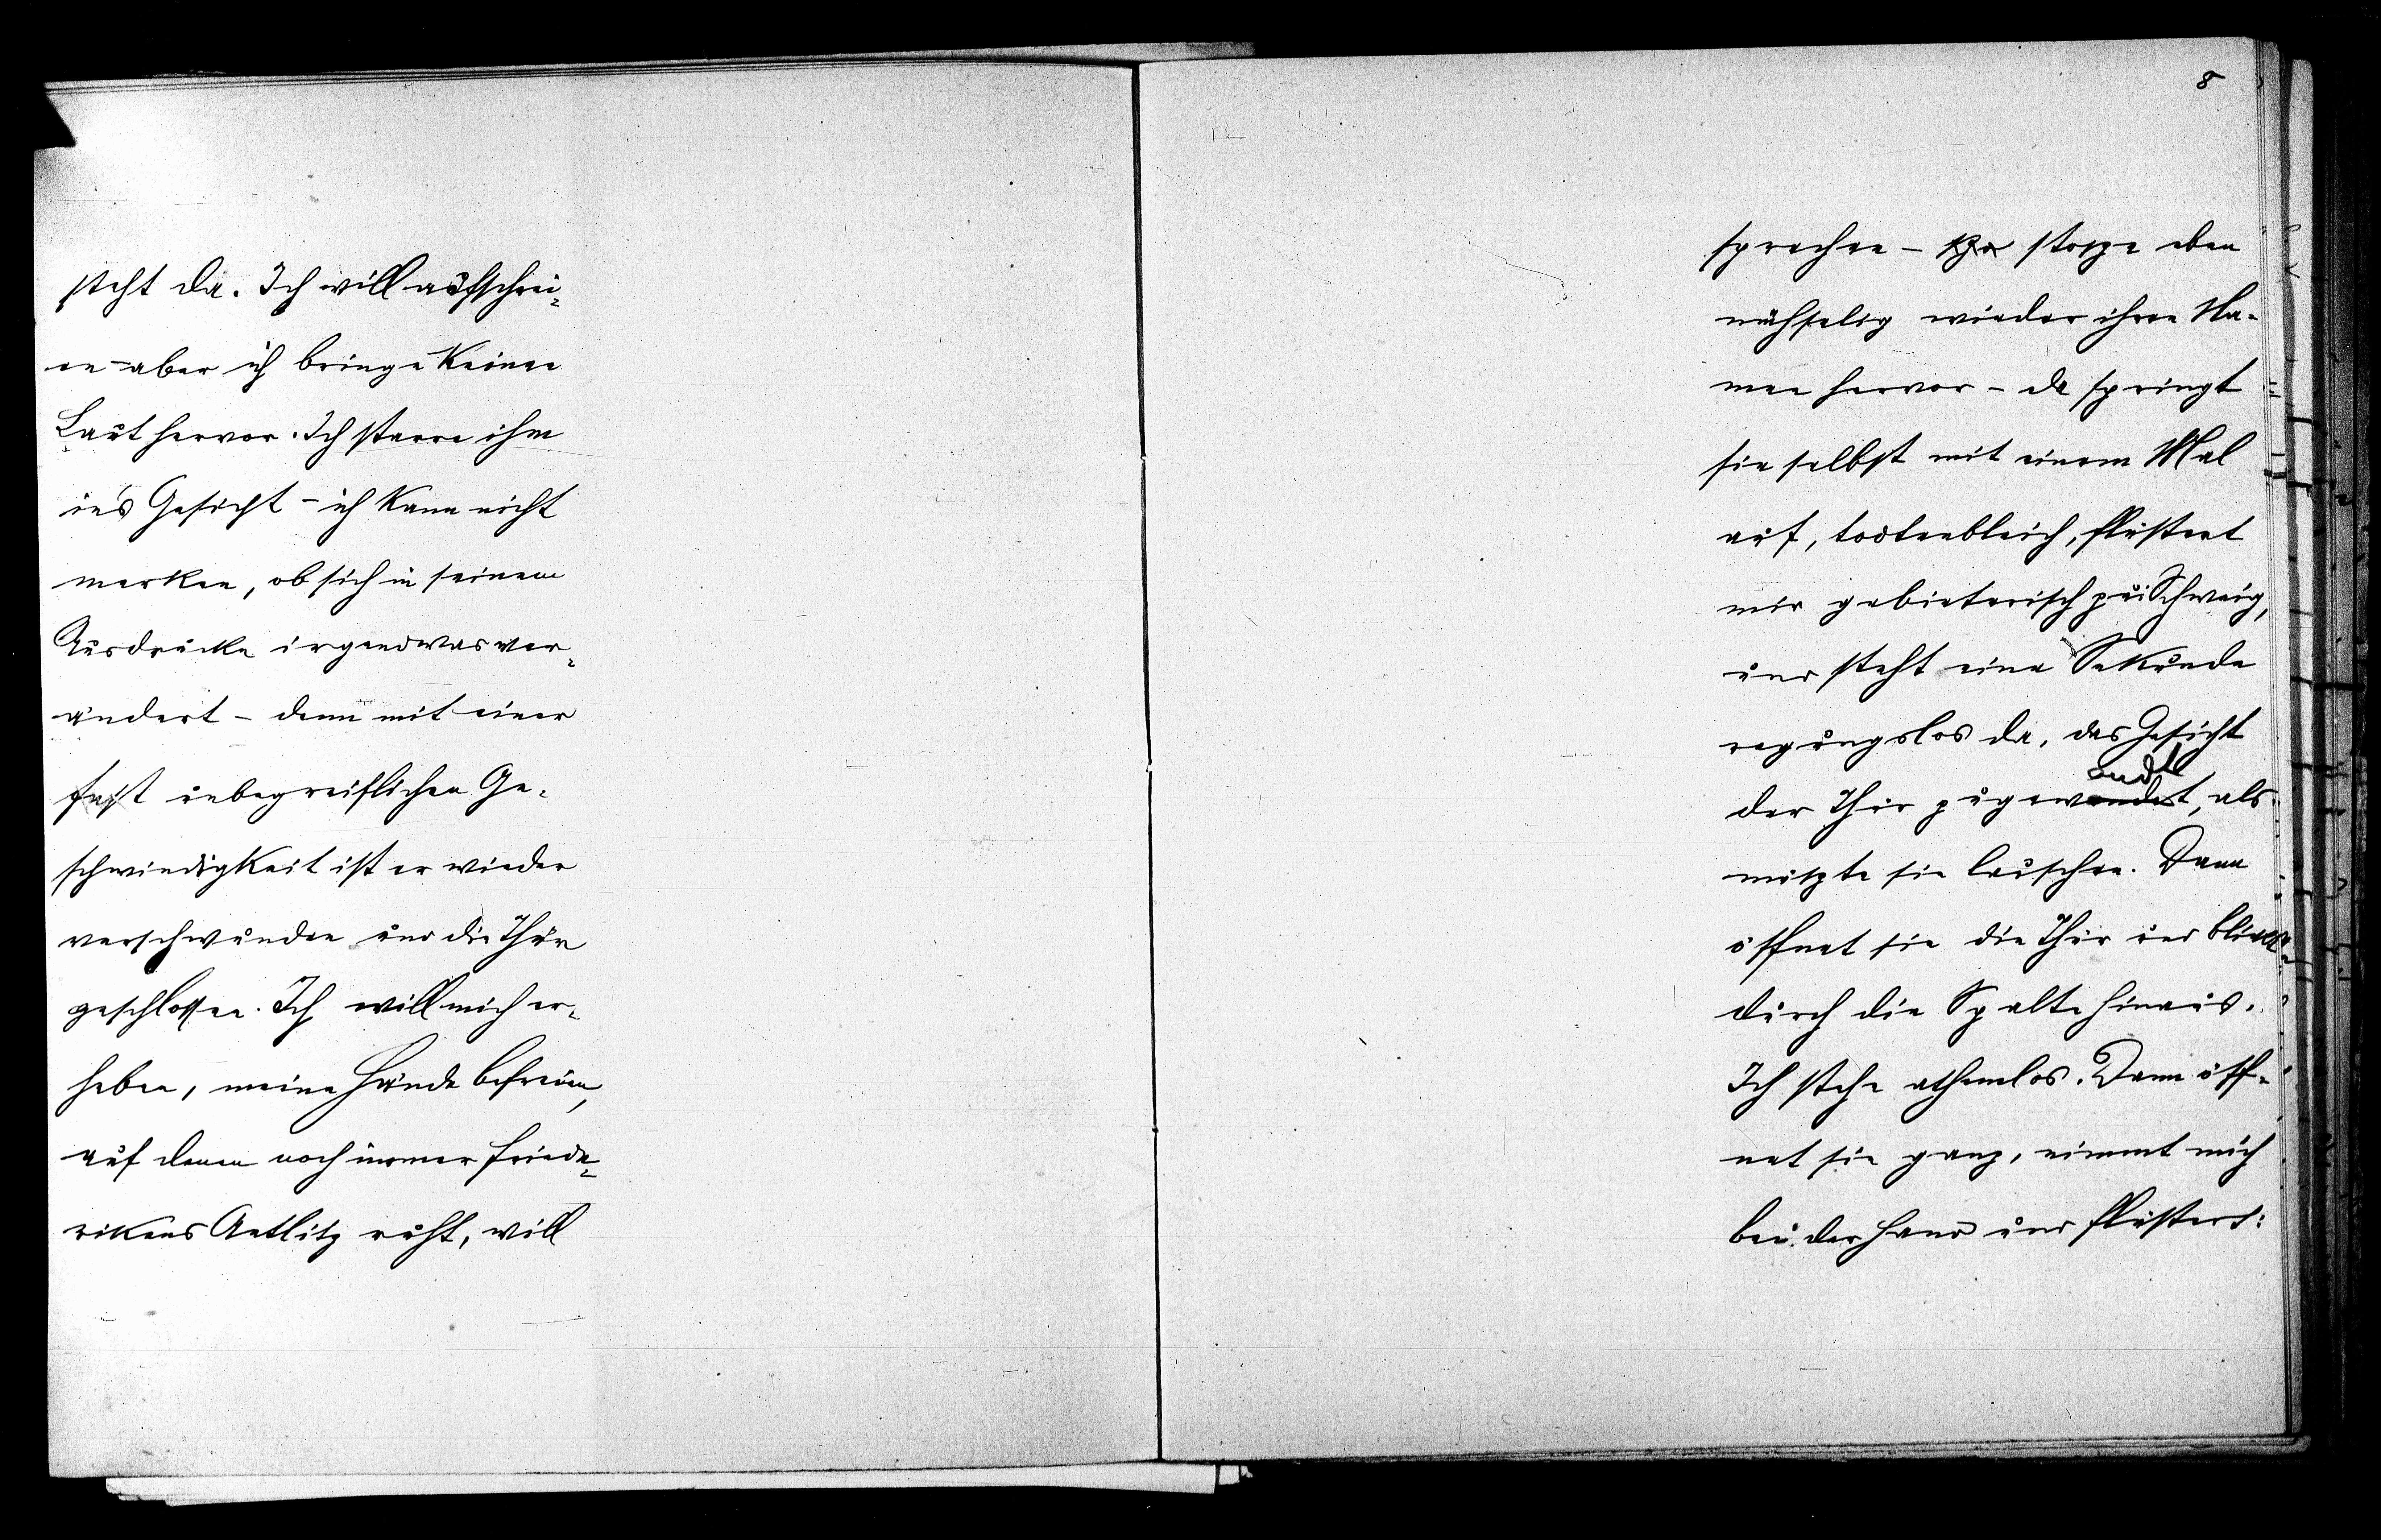 steht da. Ich will aufschrei-
en – aber ich bringe keinen
Laut hervor. Ich starre ihm
in's Gesicht – ich kann nicht
merken, ob sich in seinem
Ausdrucke irgendwas ver-
ändert – denn mit einer
fast unbegreiflichen Ge-
schwindigkeit ist er wieder
verschwunden und die Thür
geschlossen. Ich will mich er-
heben, meine Hände befreien,
auf denen noch immer Friede-
rikens Antlitz ruht, will
8
sprechen – stosze eben
mühselig wieder ihren Na-
men hervor – da springt
sie selbst mit einem Mal
auf, todtenbleich, flüstert
mir gebieterisch zu: Schweig,
und steht eine Sekunde
regungslos da, das Gesicht
der Thür zugewandt, als
müszte sie lauschen. Dann
öffnet sie die Thür und blickt
durch die Spalte hinaus.
Ich stehe athemlos. Dann öff-
net sie ganz, nimmt mich
bei der Hand und flüstert: